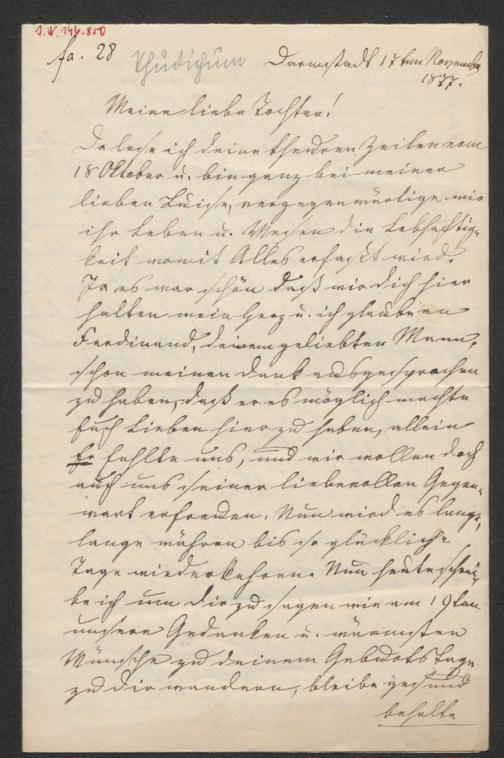 I.N. 146.850
fa. 28 Thudichum Darmstadt 17ten November
1877.
Meine liebe Tochter!
Da lese ich deine theuren Zeilen vom
18 Oktober u. bin ganz bei meiner
lieben Luise, vergegenwärtige mir
ihr Leben u. Wesen die Lebhaftig-
keit womit Alles erfaßt wird.
Ja es war schön daß wir dich hier
hatten mein Herz u. ich glaube an
Ferdinand, deinem geliebten Mann,
schon meinen Dank ausgesprochen
zu haben, daß er es möglich machte
Euch Lieben hier zu haben, allein
Er fehlte uns, und wir wollen doch
auch uns seiner liebevollen Gegen-
wart erfreuen. Nun wird es lange,
lange währen bis so glückliche
Tage wiederkehren. Nun heute schrei-
be ich um dir zu sagen wie am 19ten
unsere Gedanken u. wärmsten
Wünsche zu deinem Geburtstage
zu dir wandern, bleibe gesund
behalte